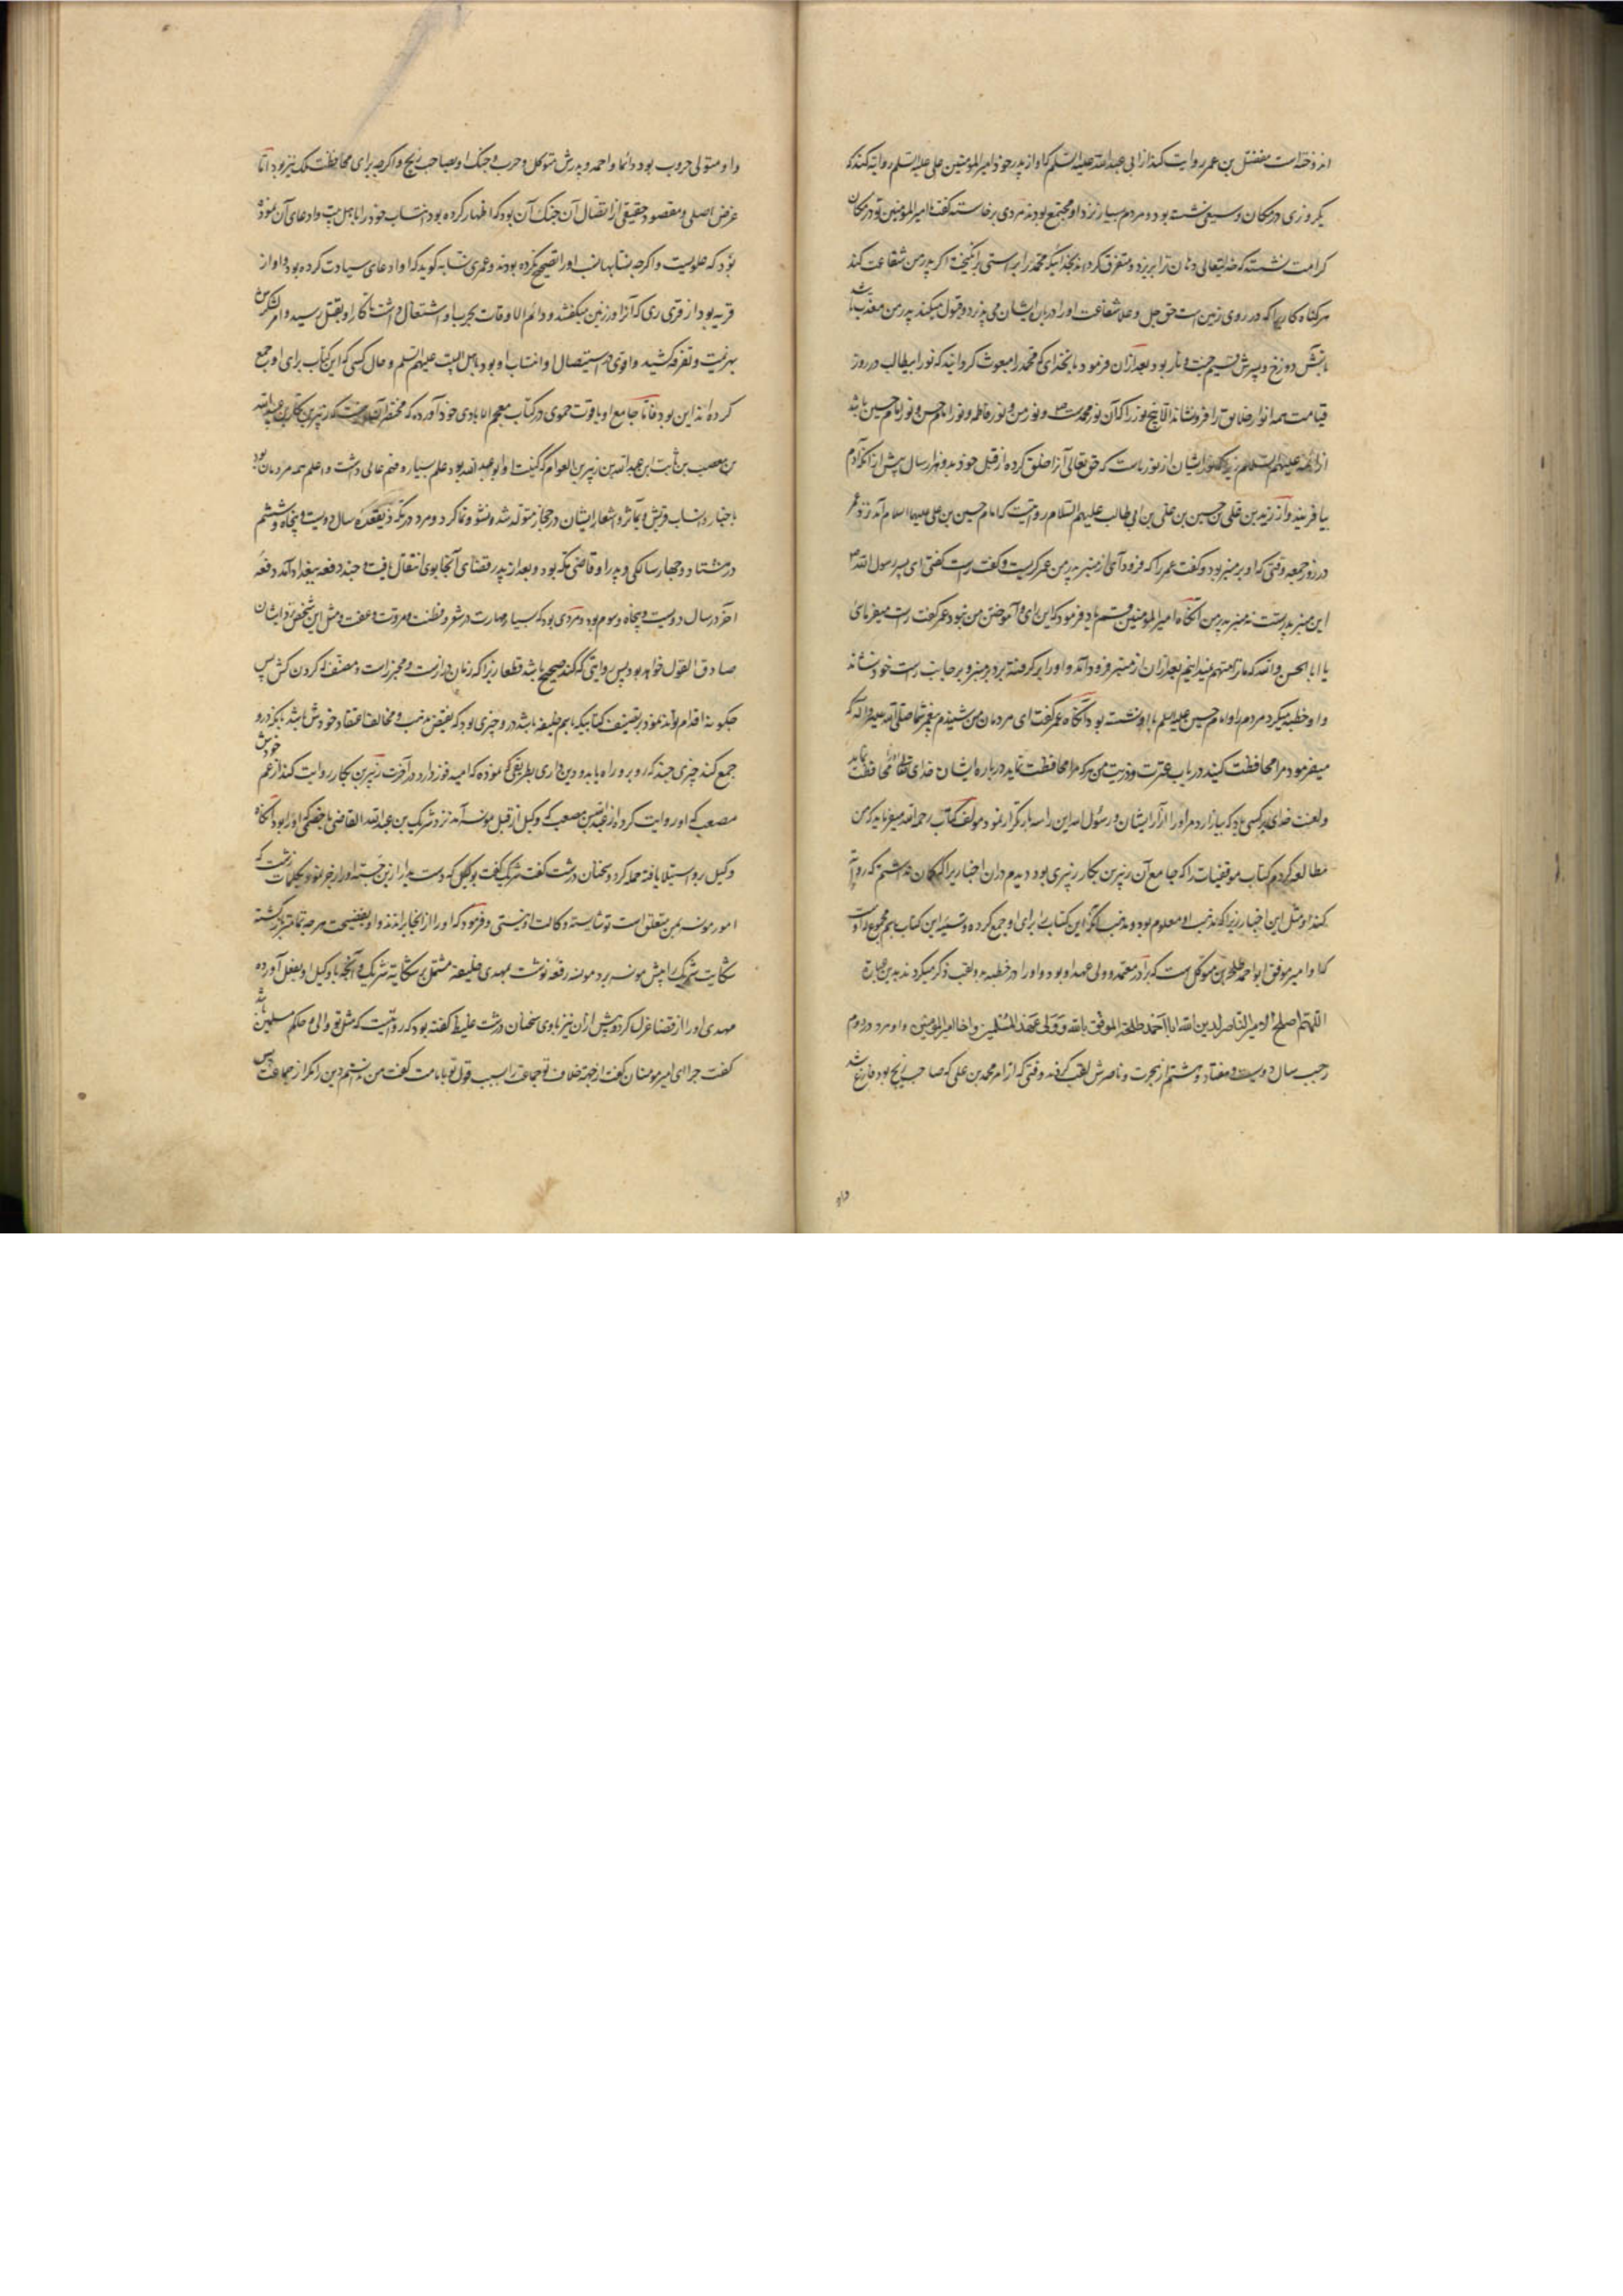 اندوخته است مفضل بن عمر روایت کند از ابی عبدالله علیه السلم که او از پدر خود امیرالمومنین علی علیه السلم روایه کند که
یکروزی در مکان وسیعی نشسته بود و مردم بسیار نزد او مجتمع بودند مردی برخاسته گفت یا امیرالمومنین تو در مکان
کرامت نشسته که خدایتعالی و پدرت معذب
هر کناه کاریرا که در روی زمین است حق جل و علا شفاعت اورا در باره ایشان می پذیرد و قبول میکند پدر من معذب باشد
باتش دوزخ و پسرش قسیم جنت و نار بود بعد ازان فرمود بانخدای که محمد را مبعوث کردانید که نور ابیطالب در روز
قیامت همه انوار خلایق را فرونشاند الا پنج نور را که آن نور محمد است و نور من و نور فاطمه و نور امام حسن و نور امام حسین باشد
از ائمه علیهم السلم زیرا که نور ایشان از نور ماست که حق تعالی آنرا خلق کرده از قبل خود بدو هزار سال پیش ازانکه آدم
بیافریند و از زید بن علی بن حسین بن علی بن ابی طالب علیهم السلام رویست که امام حسین بن علی علیهما السلام آمد نزد عمر
در روز جمعه وقتی که او بر منبر بود و گفت عمر را که فرود آی از منبر پدر من عمر کریست و گفت راست گفتی ای پسر رسول الله
این منبر پدر تست نه منبر پدر من آنکاه امیرالمومنین قسم یاد فرمود که این برای و آموختن من نبود عمر گفت راست میفرمائی
یا ابا الحسن والله که ما ترا متهم نمیدانیم بعد ازان از منبر فرود آمد و اورا بر گرفته برد بر منبر و بر جانب راست خود نشاند
و او خطبه میکرد مردم را و امام حسین علیه السلم با او نشسته بود آنکاه عمر گفت ای مردمان من شنیدم پیغمبر شما صلی الله علیه و اله که
میفرمود مرا محافظت کنید در باب عترت و ذریت من هر که مرا محافظت نماید درباره ایشان خدای تعالی اورا محافظت نماید
و لعنت خدای بر کسی باد که بیازارد مرا و آزار ایشان و رسول الله این را سه بار تکرار نمود مولف کتاب رحمه الله میفرماید که من
مطالعه کردم کتاب موفقیات را که جامع آن زبیر بن بکار زبیری بود دیدم دران اخبار یرا که کمان نداشتم که روایت
کند او مثل این اخبار زیرا که مذهب او معلوم بود و مذهب آنکه این کتاب را برای او جمع کرده و تسمیه این کتاب باسم
که او امیر موفق ابو احمد طلحه بن متوکل است که برادر معتمد و ولی عهد او بود و اورا در خطبه بدو لقب ذکر میکردند بدین عبارة
اللهم اصلح الامیر الناصر لدین الله ابا احمد طلحة الموفق بالله و ولی عهد المسلمین و اخا امیرالمومنین و او مرد در دوم
رجب سال دویست و هفتاد و هشتم از هجرت و ناصرش لقب کرفتند وقتی که از امر محمد بن علی که صاحب زنج بود فارغ شد
و او متولی حروب بود دائما و احمد و پدرش متوکل و حرب و جنک او بصاحب زنج و اکرچه برای محافظت ملک نیز بود اما
غرض اصلی و مقصود حقیقی از اتصال آن جنک آن بود که اظهار کرده بود انتساب خود را باهل بیت و ادعای آن نموده
بود که علویست و اکرچه نسابها نسب اورا تصحیح نکرده بودند و عمری نسابه کوید که او ادعای سیادت کرده بود و او از
قریه بود از قری ری که آنرا ورزنین میگفتند و دائم الاوقات بحرب او اشتغال داشت تا که او بقتل رسید و امر لشکرش
بهزیمت و تفرقه کشید و اقوی استیصال او انتساب او بود باهل البیت علیهم السلم و حال کسی که این کتاب برای او جمع
کرده اند این بود فاما جامع او یاقوت حموی در کتاب معجم الادبای خود آورده که مختصر آن است که زبیر بن بکار بن عبدالله
بن مصعب بن ثابت ابن عبدالله بن زبیر بن العوام که کنیت او ابو عبدالله بود علم بسیار و فهم عالی داشت و اعلم همه مردمان بود
باخبار و انساب قریش و مآثر و اشعار ایشان در حجاز متولد شد و نشو و نما کرد و مرد در مکه ذیقعده سال دویست و پنجاه و ششم
در هشتاد و چهار سالکی و پدر او قاضی مکه بود و بعد از پدر قضای آنجا بوی انتقال یافت و چند دفعه ببغداد آمد دفعه
آخر در سال دویست و پنجاه و سوم بود و مردی بود که بسیار مهارت در شعر و فطنت و مروت و عفت و مثل این شخص نزد ایشان
صادق القول خواهد بود پس روایتی که کند صحیح باشد قطعا زیرا که زمان دراز است و مصنف کردنکش پس
چکونه اقدام تواند نمود بر تصنیف کتابیکه باسم خلیفه باشد درو چیزی بود که نقیض مذهب و مخالف اعتقاد خودش باشد بلکه درو
جمع کند چیزی چند که روبرو راه یابد و دین داری بطریقی که نموده که امید فوز دارد در آخرت زبیر بن بکار روایت کند از عم خودش
مصعب که او روایت کرد از عبدالله بن مصعب که وکیل از قبل مونسه آمد نزد شریک بن عبدالله القاضی با خصمی که اورا بود آنکاه
وکیل برو استیلا یافته حمله کرد و سخنان درشت گفت شریک گفت بوکیل که دست بدار ازین
امور مونسه بمن متعلق است تو شایسته وکالت او نیستی و فرمود که اورا از انجا براندند و او بفضیحت هر چه تمامتر برگشته
شکایت شریک را پیش مونسه برد مونسه رقعه نوشت بمهدی خلیفه مشتمل بر شکایت شریک و آنچه با وکیل او بفعل آورده
مهدی اورا از قضا عزل کرد و پیش ازان نیز باوی سخنان درشت غلیظ گفته بود که روا نیست که مثل تو والی و حاکم مسلمین باشد
گفت چرا ای امیر مومنان گفت از جهة خلاف تو جماعت را بسبب قول تو بامامت گفت من ندانستم دین را مکر از جماعت پس